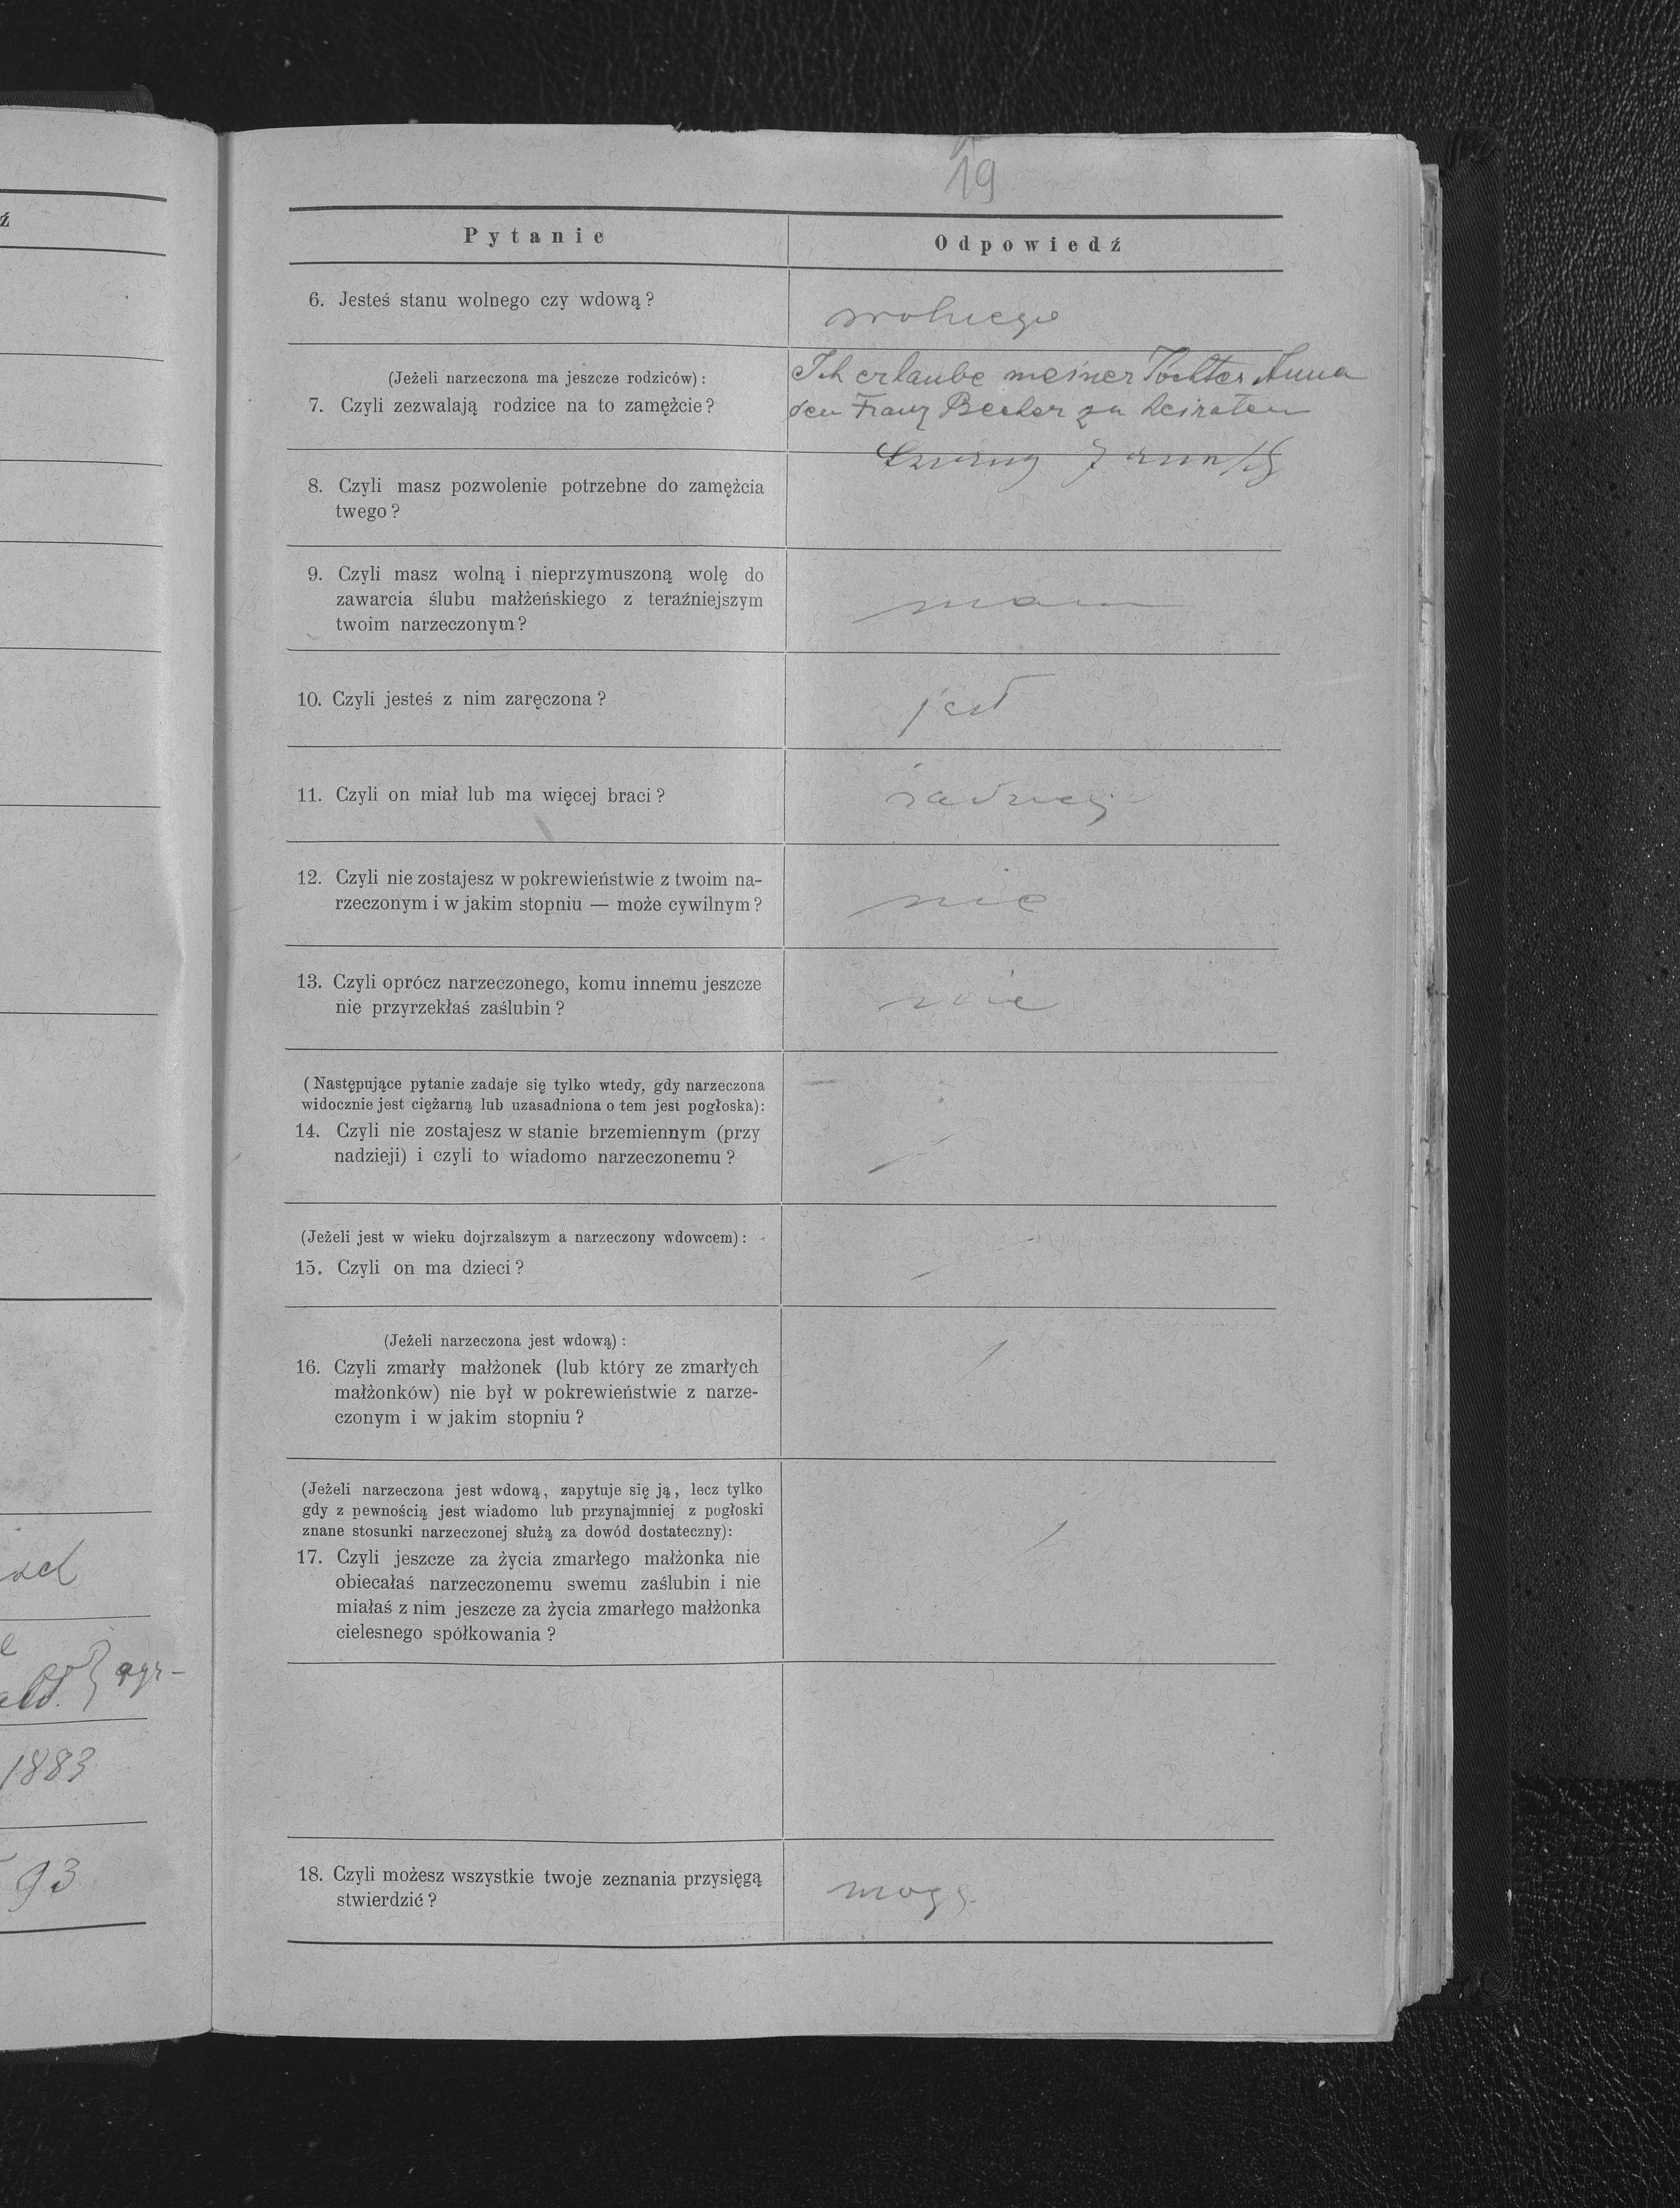 ź
xel
e
ald. } agr-
1883
93
19
Pytanie
Odpowiedź
6. Jesteś stanu wolnego czy wdową?
wolnego
(Jeżeli narzeczona ma jeszcze rodziców):
7. Czyli zezwalają rodzice na to zamężcie?
Ich erlaube meiner Tochter Anna
den Franz Becker zu heiraten
8. Czyli masz pozwolenie potrzebne do zamężcia
twego?
9. Czyli masz wolną i nieprzymuszoną wolę do
zawarcia ślubu małżeńskiego z teraźniejszym
twoim narzeczonym?
mam
10. Czyli jesteś z nim zaręczona?
jest
11. Czyli on miał lub ma więcej braci?
12. Czyli nie zostajesz w pokrewieństwie z twoim na-
rzeczonym i w jakim stopniu — może cywilnym?
nie
13. Czyli oprócz narzeczonego, komu innemu jeszcze
nie przyrzekłaś zaślubin?
nie
(Następujące pytanie zadaje się tylko wtedy, gdy narzeczona
widocznie jest ciężarną lub uzasadniona o tem jest pogłoska):
14. Czyli nie zostajesz w stanie brzemiennym (przy
nadzieji) i czyli to wiadomo narzeczonemu?
(Jeżeli jest w wieku dojrzalszym a narzeczony wdowcem):
15. Czyli on ma dzieci?
(Jeżeli narzeczona jest wdową):
16. Czyli zmarły małżonek (lub który ze zmarłych
małżonków) nie był w pokrewieństwie z narze-
czonym i w jakim stopniu?
(Jeżeli narzeczona jest wdową, zapytuje się ją, lecz tylko
gdy z pewnością jest wiadomo lub przynajmniej z pogłoski
znane stosunki narzeczonej służą za dowód dostateczny):
17. Czyli jeszcze za życia zmarłego małżonka nie
obiecałaś narzeczonemu swemu zaślubin i nie
miałaś z nim jeszcze za życia zmarłego małżonka
cielesnego spółkowania?
18. Czyli możesz wszystkie twoje zeznania przysięgą
stwierdzić?
mogę